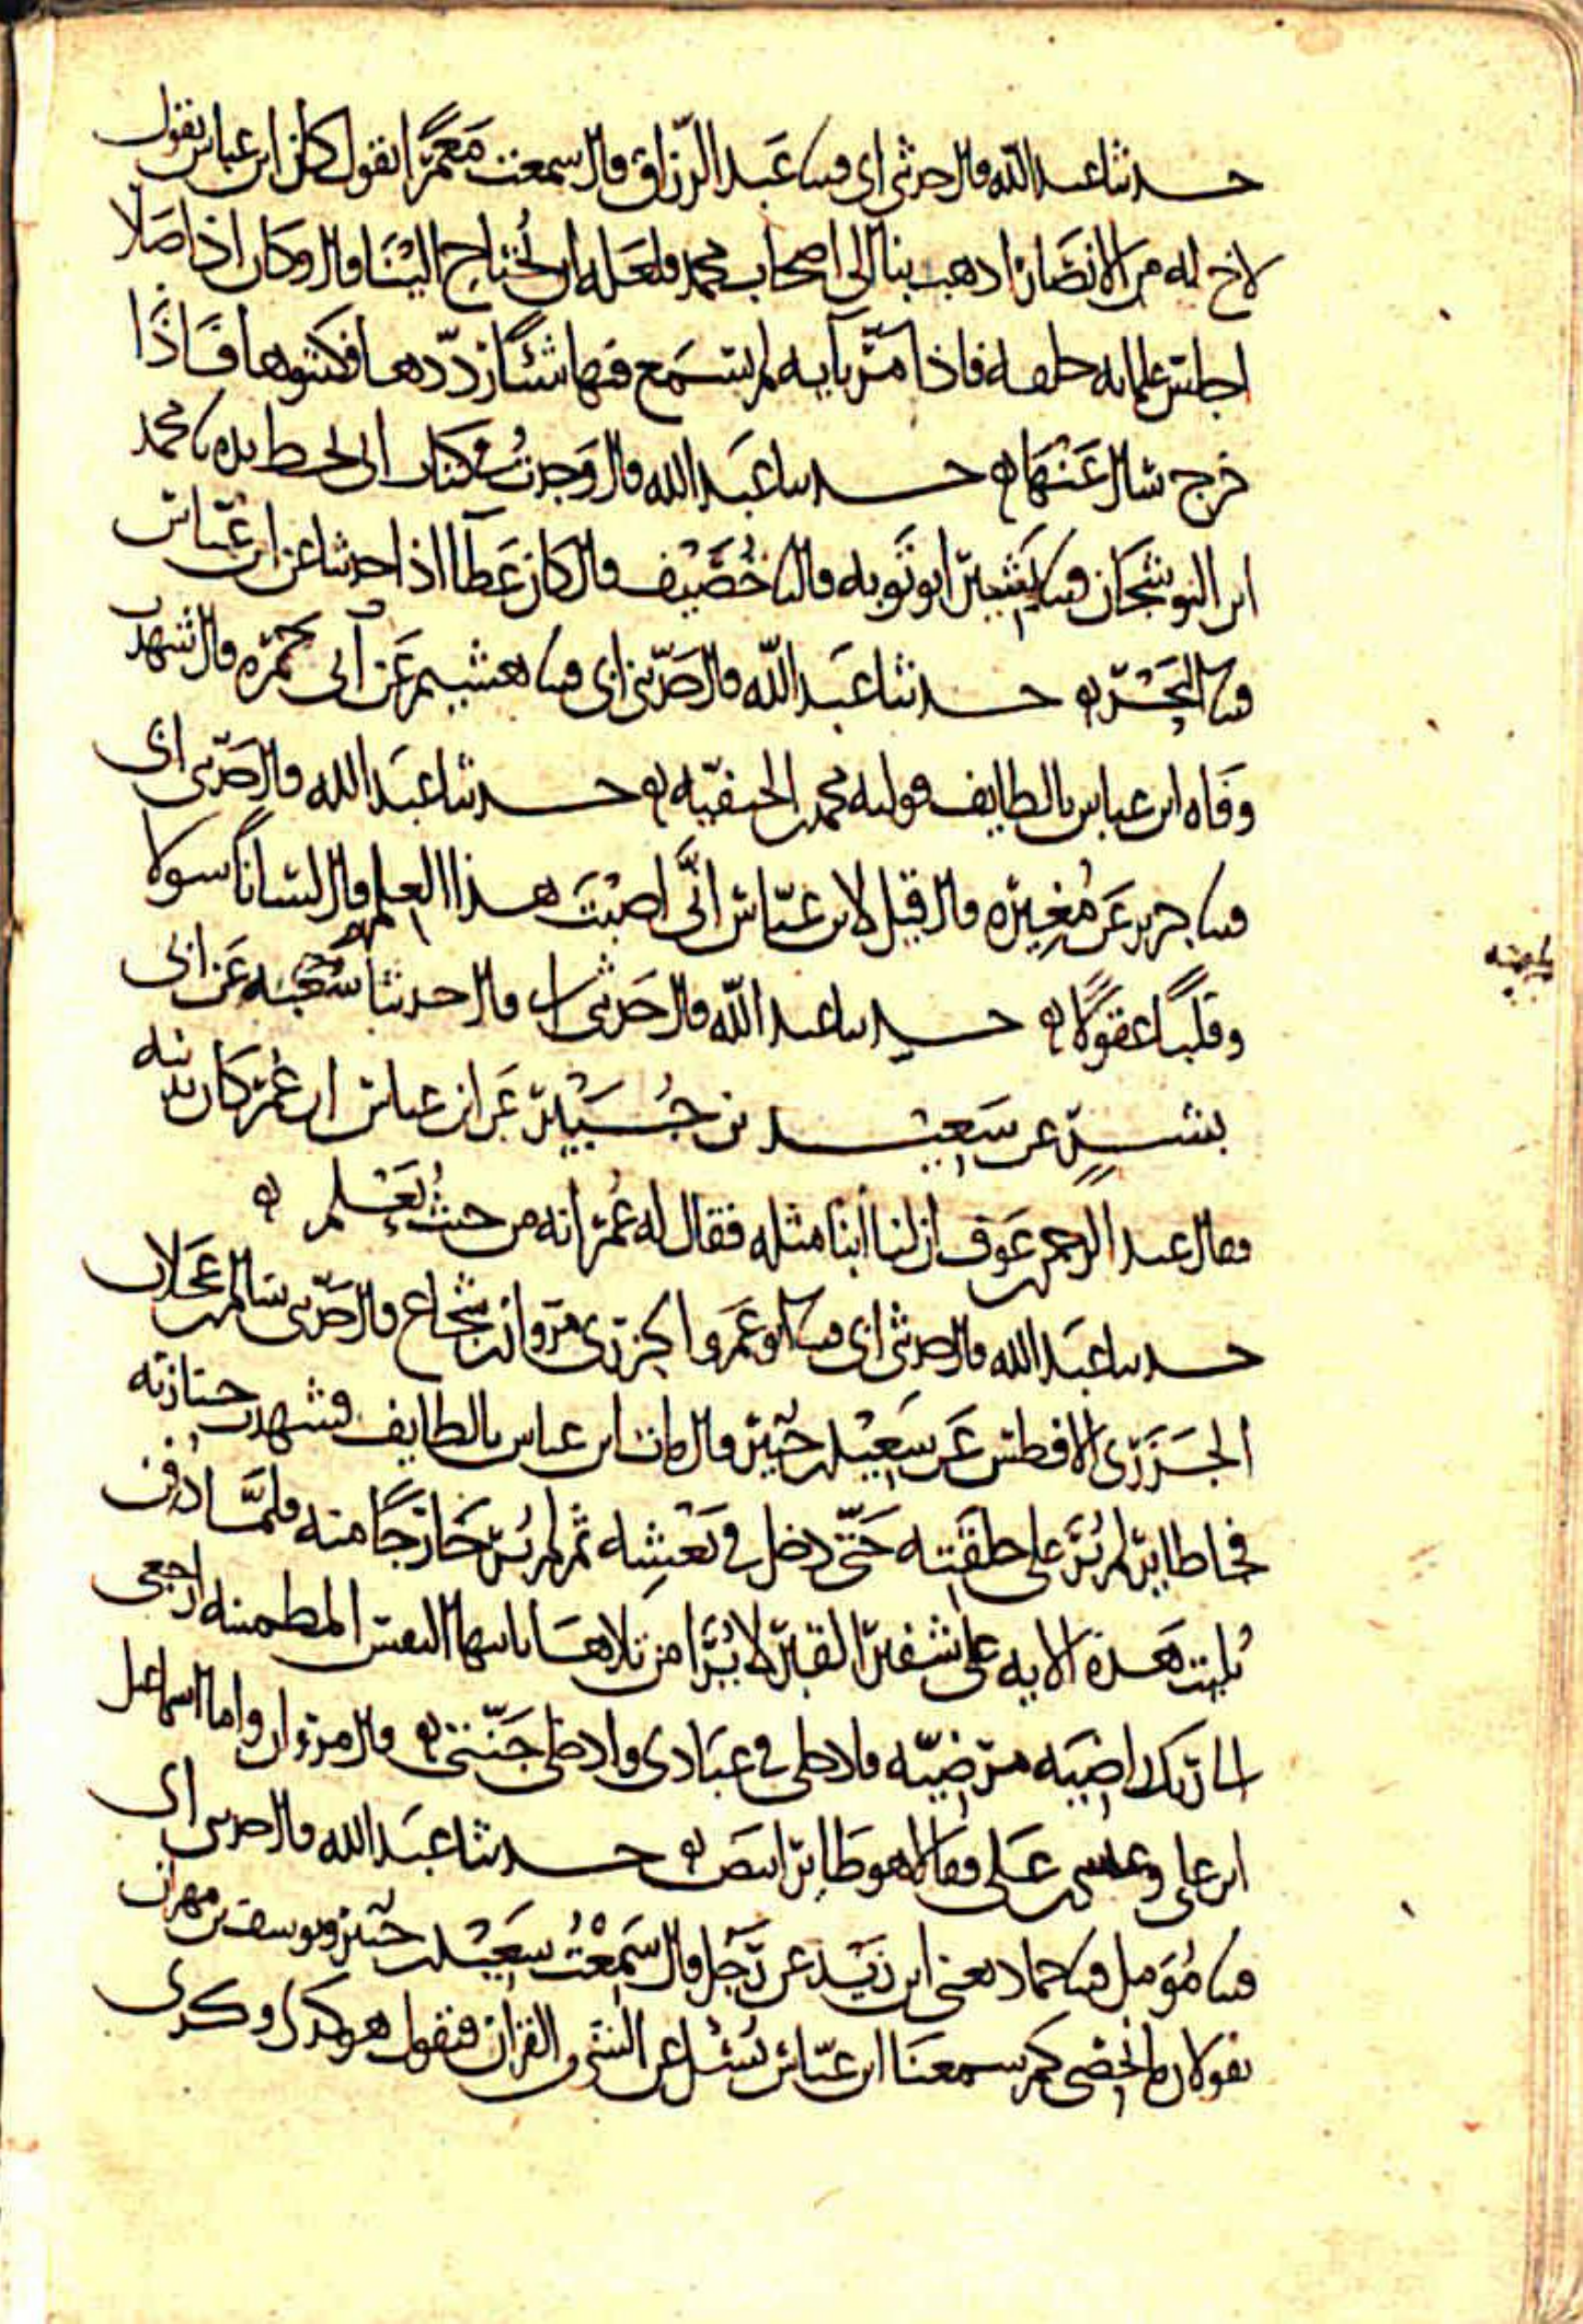 حدثنا عبد الله قال حدثني ابي قثنا عبد الرزاق قال سمعت معمرا يقول كان ابن عباس يقول
لاخ له من الانصار اذهب بنا الى اصحاب محمد فلعله ان يحتاج الينا قال وكان اذا صلا
اجلس غلمانه خلفه فاذا مر بآيه لم يسمع فيها شيئا رددها فكتبوها فاذا
خرج سال عنها ه حدثنا عبد الله قال وجدت في كتاب ابي بخط يده نا محمد
ابن النوشجان قثنا بشير ابو توبه قال نا خصيف قال كان عطآ اذا حدثنا عن ابن عباس
قثنا البحر ه حدثنا عبد الله قال حدثني ابي قثنا هشيم عن ابي حمزه قال شهدت
وفاه ابن عباس بالطايف فوليه محمد بن الحنفيه ه حدثنا عبد الله قال حدثني ابي
قثنا جرير عن مغيره قال قيل لابن عباس انى اصبت هذا العلم قال لسانا سولا
وقلبا عقولا ه حدثنا عبد الله قال حدثني ابي قال حدثنا شعبه عن ابي
بشر عن سعيد بن جبير عن ابن عباس ان عمر كان يدنيه
فقال عبد الرحمن بن عوف ان لنا ابنا مثله فقال له عمر انه من حيث تعلم ه
حدثنا عبد الله قال حدثني ابي قثنا ابو عمرو الجزري مروان بن شجاع قال حدثني سالم بن عجلان
الجزري الافطس عن سعيد بن جبير قال مات ابن عباس بالطايف فشهدت جنازته
فجا طاير لم ير على خلقته حتى دخل في نعشه ثم لم ير خارجا منه فلما دفن
تليت هذه الايه على شفير القبر لا يرا من تلاها يا ايتها النفس المطمئنه ارجعي
الى ربك راضيه مرضيه فادخلي في عبادي وادخلي جنتي ه قال مروان واما اسماعيل
ابن علي وعيسى بن علي فقالا هو طاير ابيض ه حدثنا عبد الله قال حدثني ابي
قثنا مؤمل قثنا حماد يعني ابن زيد عن رجل قال سمعت سعيد بن جبير ويوسف بن مهران
يقولان ما نحصي كم سمعنا ابن عباس يسئل عن الشي من القران فيقول هو كذى وكذى